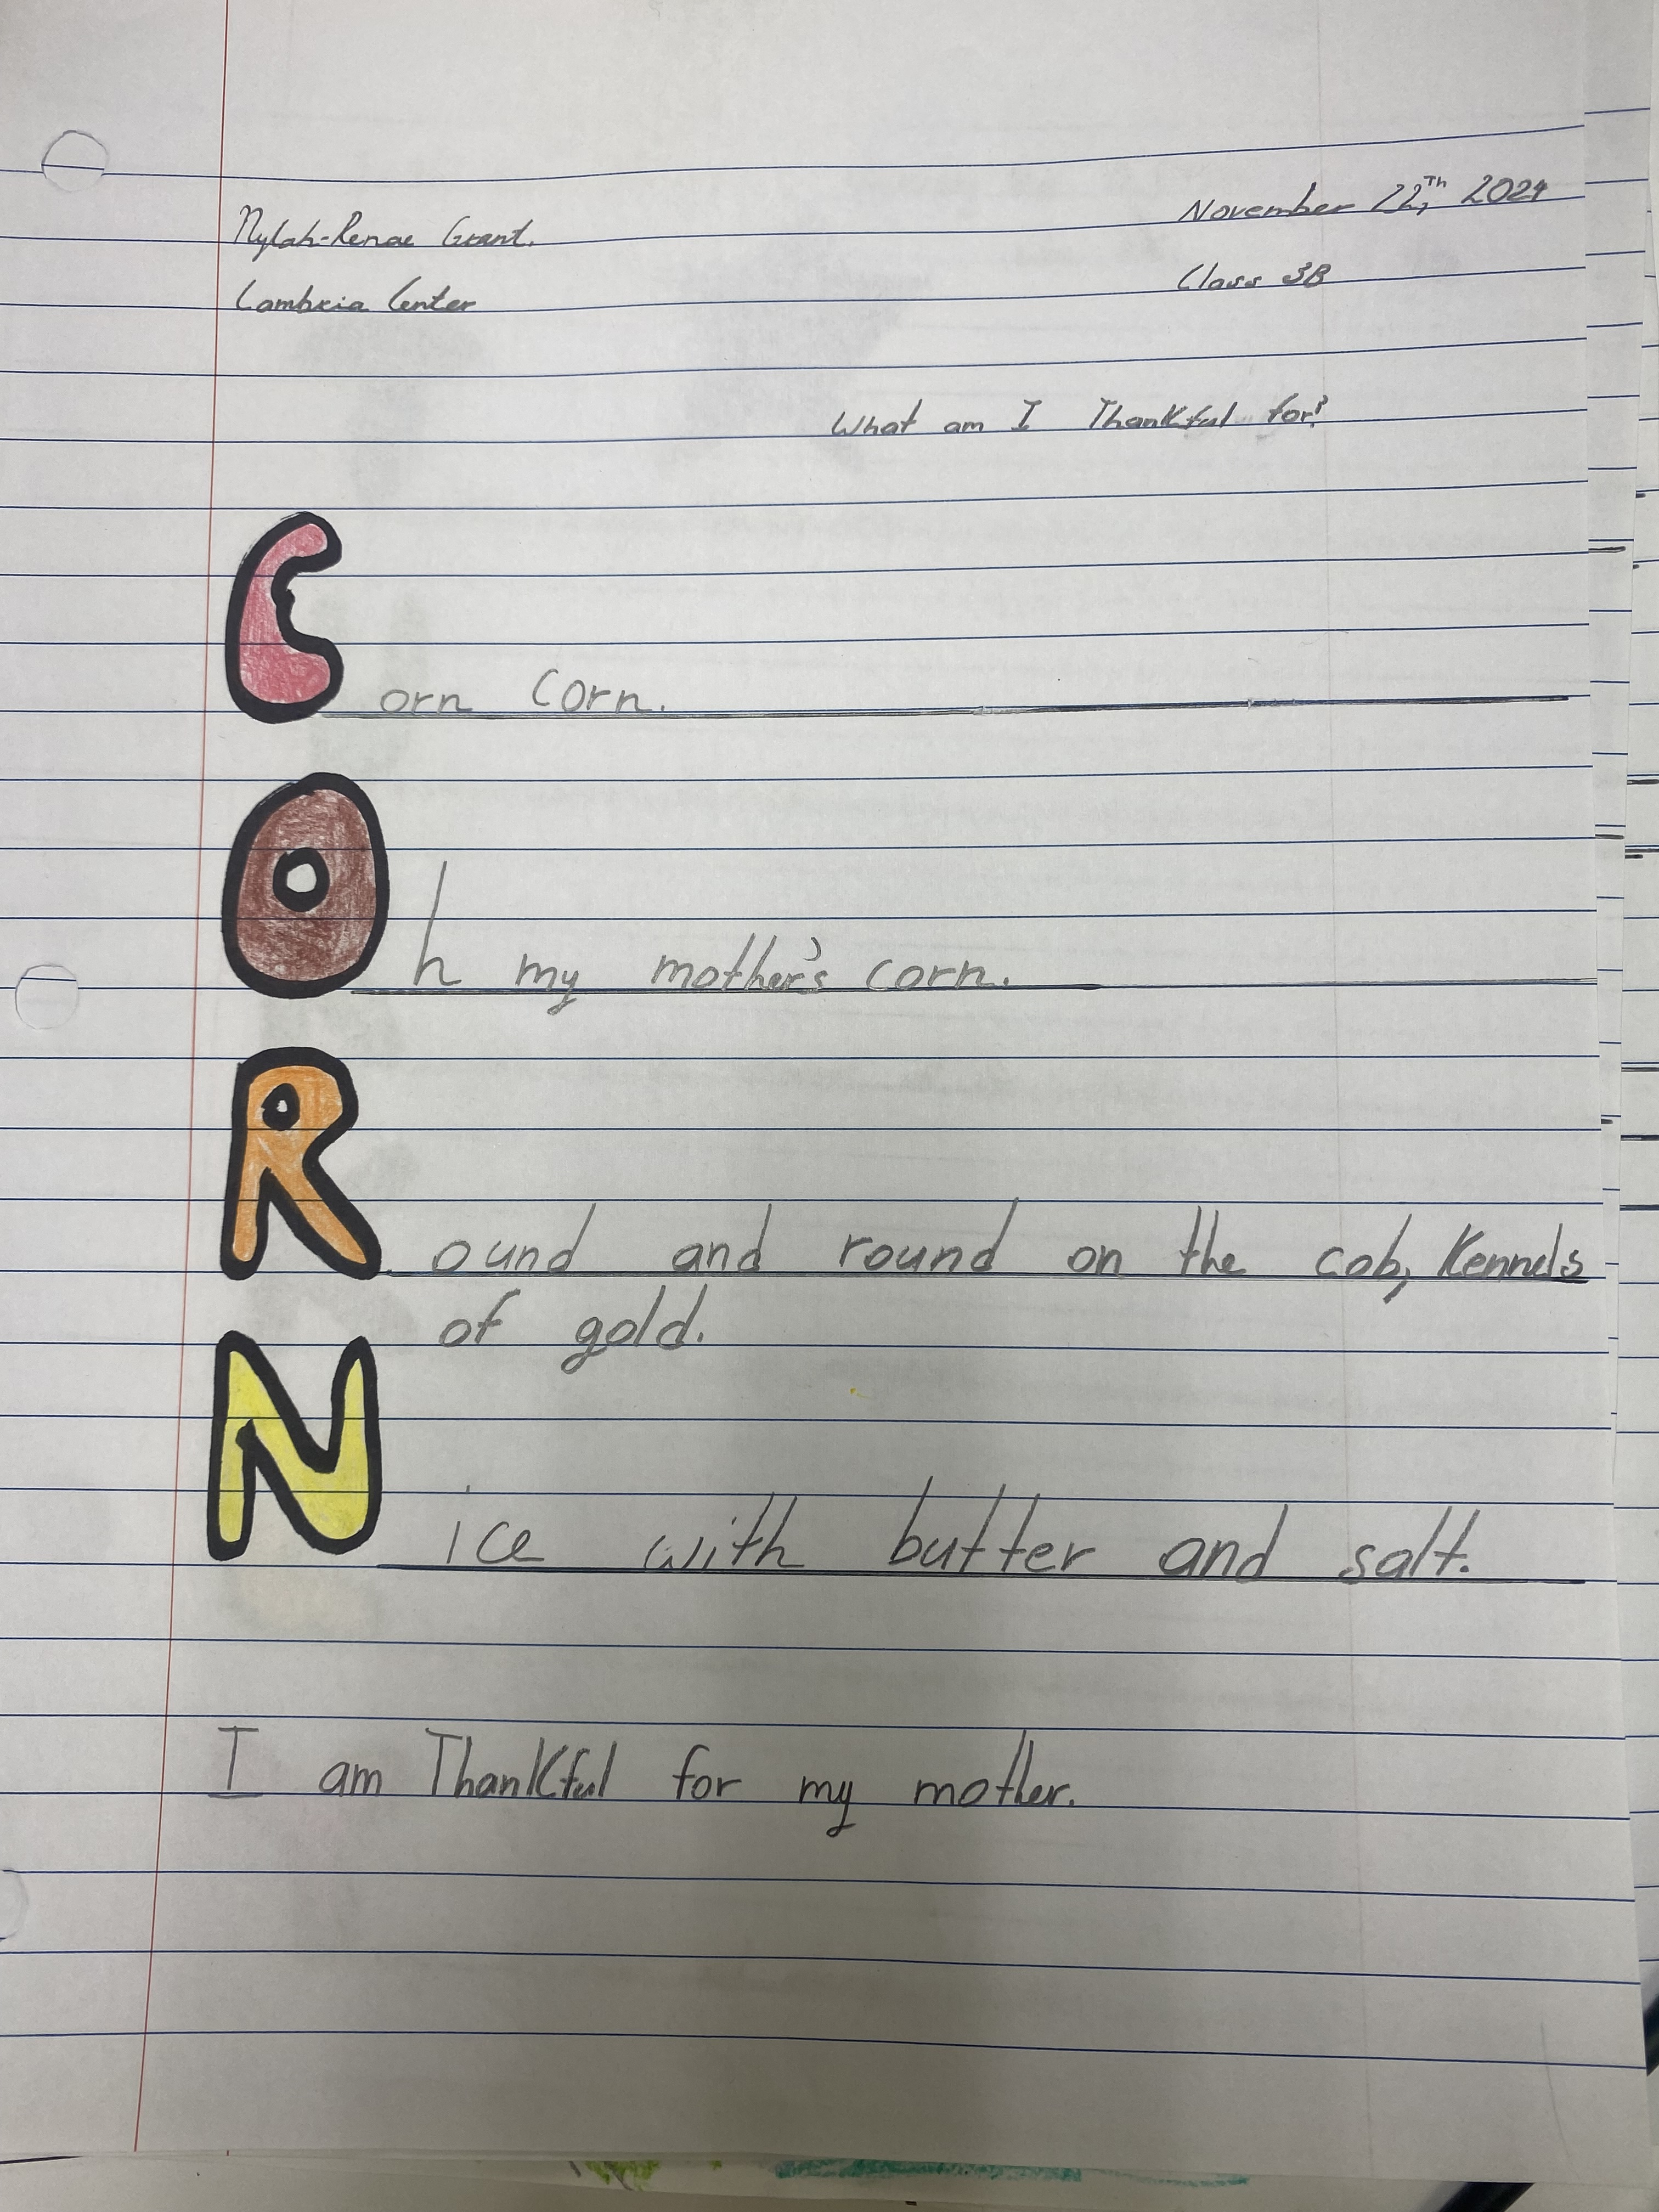 Nylah-Renae Grant. November 22,Th 2024
Cambria Center Class 3B
What am I Thankful for?
Corn Corn.
Oh my mother's corn.
Round and round on the cob, Kennels
of gold.
Nice with butter and salt.
I am Thankful for my mother.